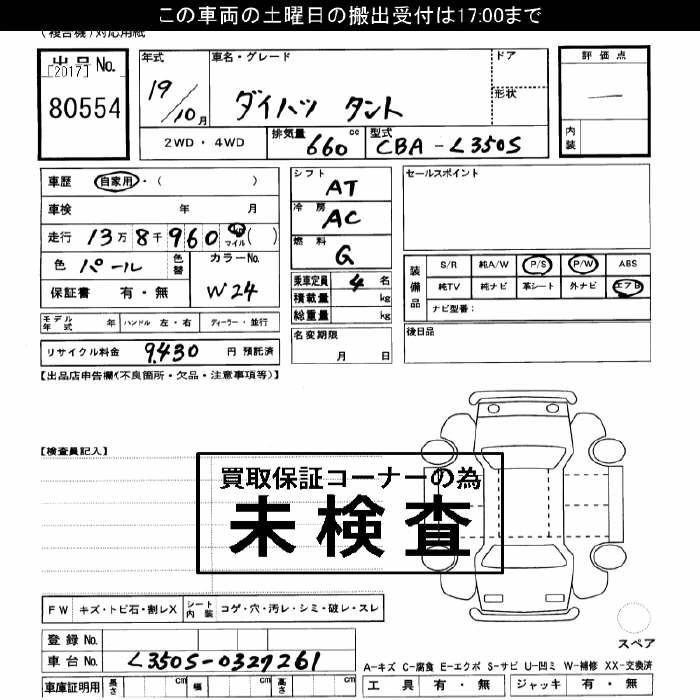 この車両の土曜日の搬出受付は17:00まで
(複合機)対応用紙
出品No.
[2017]
80554
年式 車名・グレード ドア 形状
19/10月 ダイハツ タント
2WD・4WD 排気量 660 cc 型式 CBA-L350S
評価点
―
内装
車歴 自家用・( )
車検 年 月
走行 13万8千960 km マイル ( )
色 パール 色替 カラーNo. W24
保証書 有・無
シフト AT
冷房 AC
燃料 G
乗車定員 4名
積載量 kg
総重量 kg
名変期限
月 日
セールスポイント
装備品
S/R 純A/W P/S P/W ABS
純TV 純ナビ 革シート 外ナビ エアB
ナビ型番:
後日品
モデル年式 年 ハンドル 左・右 ディーラー・並行
リサイクル料金 9,430 円 預託済
【出品店申告欄(不良箇所・欠品・注意事項等)】
【検査員記入】
買取保証コーナーの為
未検査
FW キズ・トビ石・割レX シート内装 コゲ・穴・汚レ・シミ・破レ・スレ
登録No.
車台No. L350S-0327261
車庫証明用 長さ cm 幅 cm 高さ cm
スペア
A-キズ C-腐食 E-エクボ S-サビ U-凹ミ W-補修 XX-交換済
工具 有・無 ジャッキ 有・無